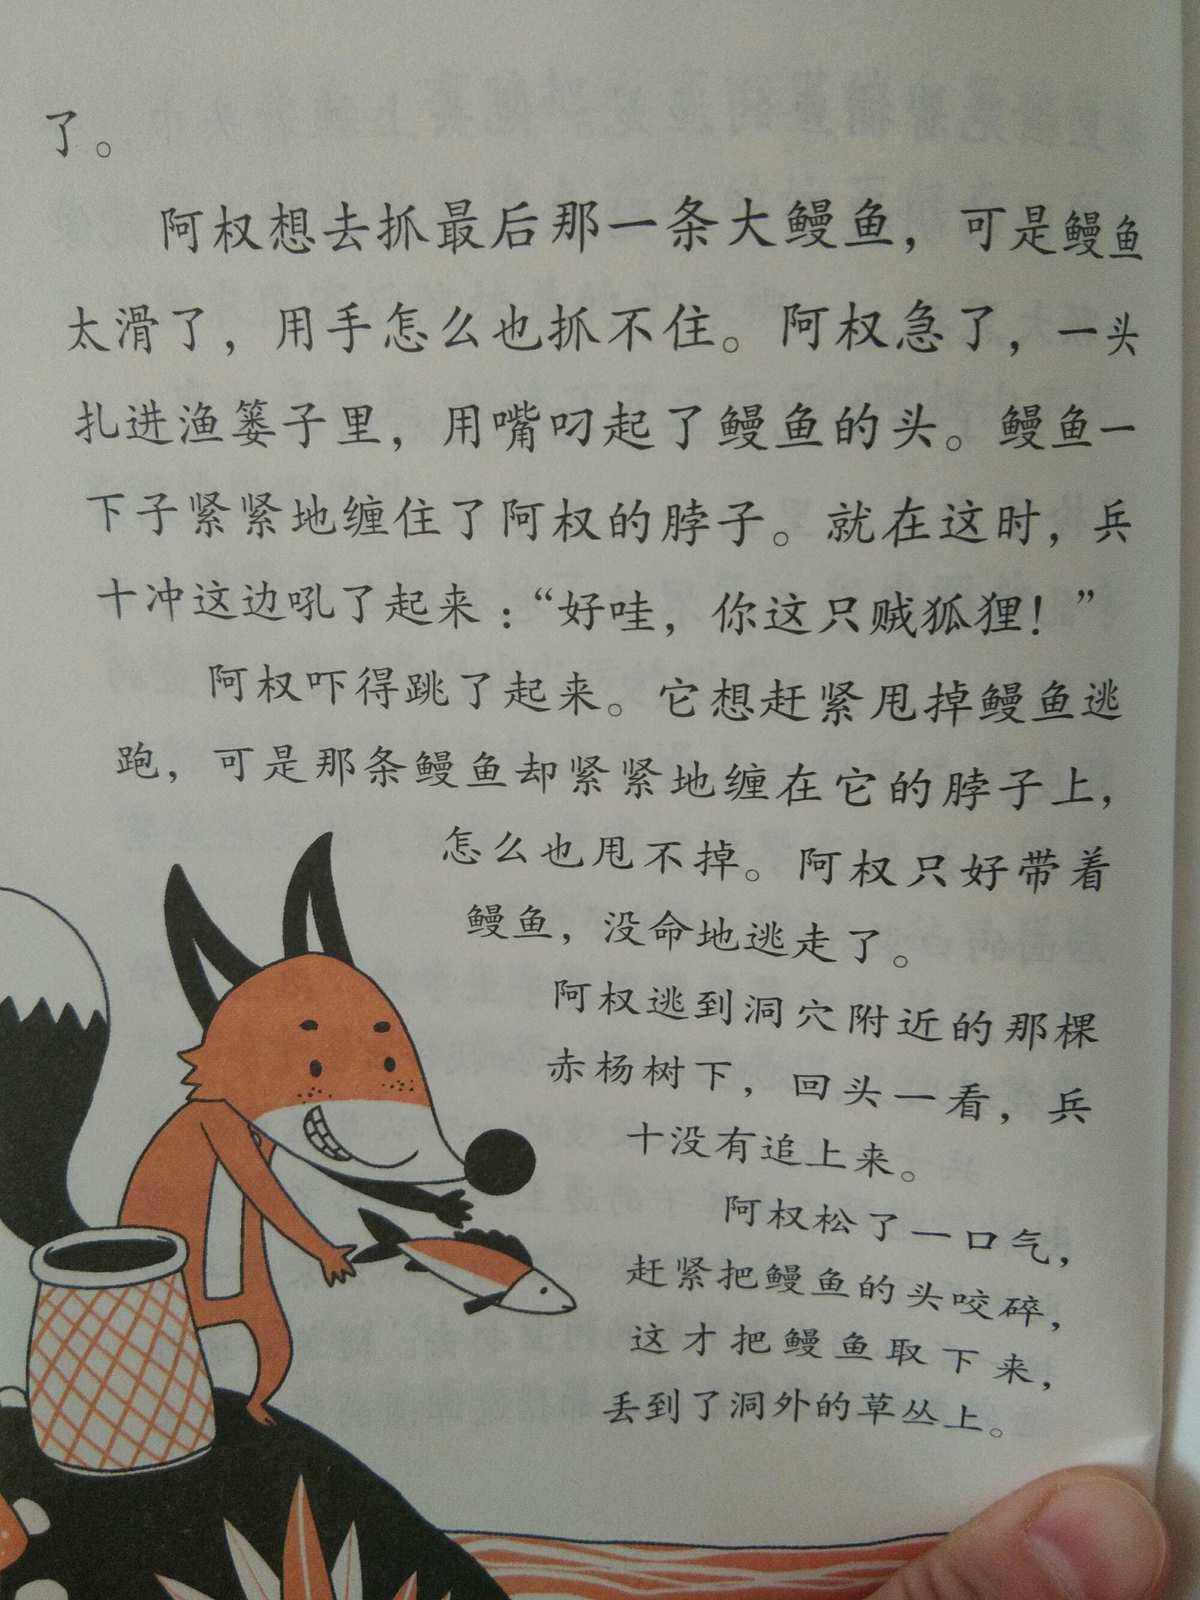 了。
阿权想去抓最后那一条大鳗鱼，可是鳗鱼
太滑了，用手怎么也抓不住。阿权急了，一头
扎进渔篓子里，用嘴叼起了鳗鱼的头。鳗鱼一
下子紧紧地缠住了阿权的脖子。就在这时，兵
十冲这边吼了起来：“好哇，你这只贼狐狸！”
阿权吓得跳了起来。它想赶紧甩掉鳗鱼逃
跑，可是那条鳗鱼却紧紧地缠在它的脖子上，
怎么也甩不掉。阿权只好带着
鳗鱼，没命地逃走了。
阿权逃到洞穴附近的那棵
赤杨树下，回头一看，兵
十没有追上来。
阿权松了一口气，
赶紧把鳗鱼的头咬碎，
这才把鳗鱼取下来，
丢到了洞外的草丛上。